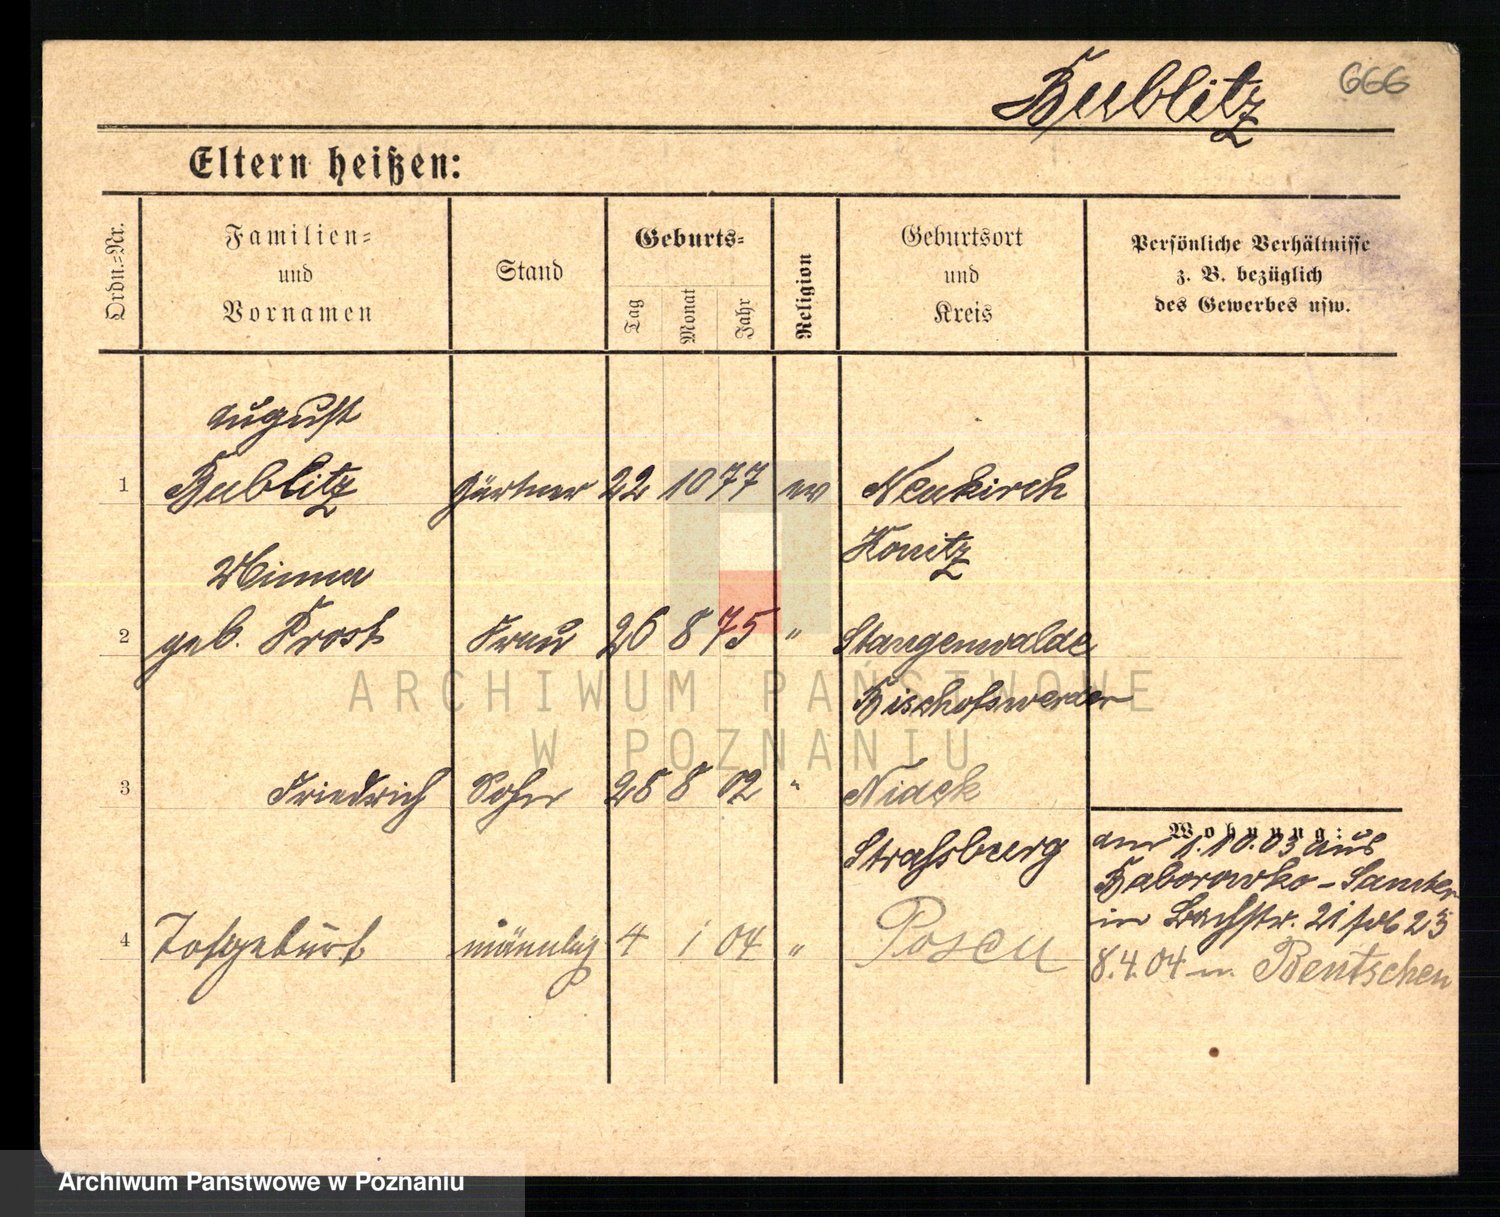 Bublitz 666
Eltern heißen:
Ordn.-Nr.
Familien-
und
Vornamen
Stand
Geburts-
Tag
Monat
Jahr
Religion
Geburtsort
und
Kreis
Persönliche Verhältnisse
z. B. bezüglich
des Gewerbes usw.
August
1 Bublitz Gärtner 22 10 77 ev Neukirch
Konitz
Minna
2 geb. Frost Frau 26 8 75 " Stangenwalde
Bischofswerder
3 Friedrich Sohn 28 8 02 " Nideck
Strassburg
4 Totgeburt männlich 4 1 04 " Posen
Wohnung:
am 1.10.03 aus
Baborowko - Samter
in Bachstr. 21 23
8.4.04 n. Bentschen
ARCHIWUM PAŃSTWOWE
W POZNANIU
Archiwum Państwowe w Poznaniu